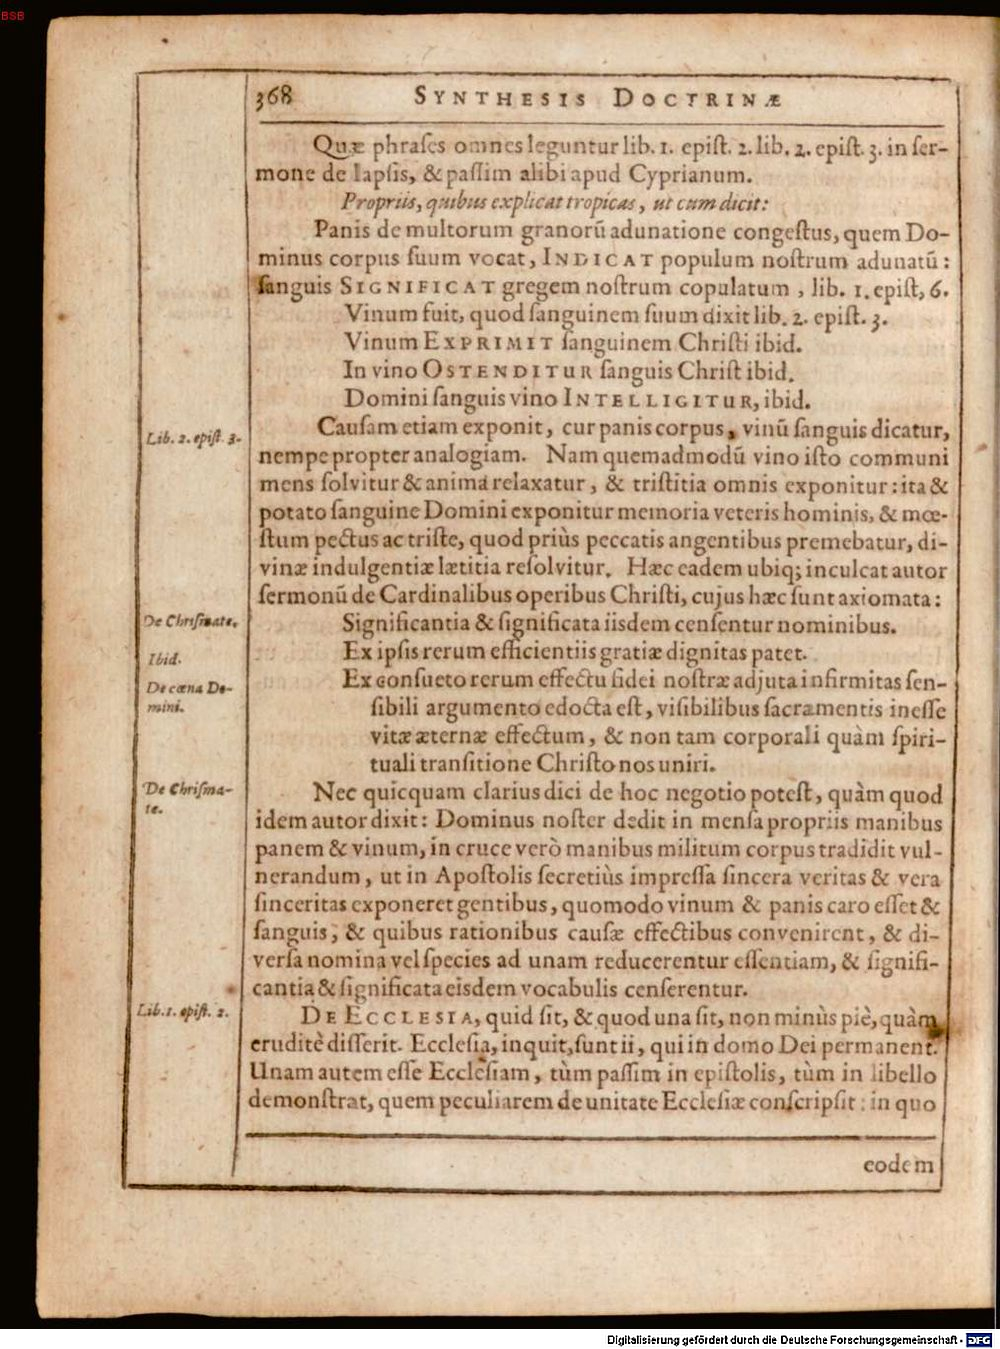 BSB
368 SYNTHESIS DOCTRINÆ
Quæ phraſes omnes leguntur lib. 1. epiſt. 2. lib. 2. epiſt. 3. in ſer-
mone de lapſis, & paſſim alibi apud Cyprianum.
Propriis, quibus explicat tropicas, ut cum dicit:
Panis de multorum granorū adunatione congeſtus, quem Do-
minus corpus ſuum vocat, INDICAT populum noſtrum adunatū:
ſanguis SIGNIFICAT gregem noſtrum copulatum, lib. 1. epiſt, 6.
Vinum fuit, quod ſanguinem ſuum dixit lib. 2. epiſt. 3.
Vinum EXPRIMIT ſanguinem Chriſti ibid.
In vino OSTENDITUR ſanguis Chriſt ibid.
Domini ſanguis vino INTELLIGITUR, ibid.
Lib. 2. epiſt. 3.
Cauſam etiam exponit, cur panis corpus, vinū ſanguis dicatur,
nempe propter analogiam. Nam quemadmodū vino iſto communi
mens ſolvitur & anima relaxatur, & triſtitia omnis exponitur: ita &
potato ſanguine Domini exponitur memoria veteris hominis, & mœ-
ſtum pectus ac triſte, quod priùs peccatis angentibus premebatur, di-
vinæ indulgentiæ lætitia reſolvitur. Hæc eadem ubiq; inculcat autor
ſermonū de Cardinalibus operibus Chriſti, cujus hæc ſunt axiomata:
De Chriſmate.
Significantia & ſignificata iisdem cenſentur nominibus.
Ibid.
Ex ipſis rerum efficientiis gratiæ dignitas patet.
De cœna Do-
mini.
Ex conſueto rerum effectu fidei noſtræ adjuta infirmitas ſen-
ſibili argumento edocta eſt, viſibilibus ſacramentis ineſſe
vitæ æternæ effectum, & non tam corporali quàm ſpiri-
tuali tranſitione Chriſto nos uniri.
De Chriſma-
te.
Nec quicquam clarius dici de hoc negotio poteſt, quàm quod
idem autor dixit: Dominus noſter dedit in menſa propriis manibus
panem & vinum, in cruce verò manibus militum corpus tradidit vul-
nerandum, ut in Apoſtolis ſecretiùs impreſſa ſincera veritas & vera
ſinceritas exponeret gentibus, quomodo vinum & panis caro eſſet &
ſanguis, & quibus rationibus cauſæ effectibus convenirent, & di-
verſa nomina vel ſpecies ad unam reducerentur eſſentiam, & ſignifi-
cantia & ſignificata eisdem vocabulis cenſerentur.
Lib. 1. epiſt. 2.
DE ECCLESIA, quid ſit, & quod una ſit, non minùs piè, quàm
eruditè diſſerit. Eccleſia, inquit, ſunt ii, qui in domo Dei permanent.
Unam autem eſſe Eccleſiam, tùm paſſim in epiſtolis, tùm in libello
demonſtrat, quem peculiarem de unitate Eccleſiæ conſcripſit: in quo
eodem
Digitalisierung gefördert durch die Deutsche Forschungsgemeinschaft - DFG